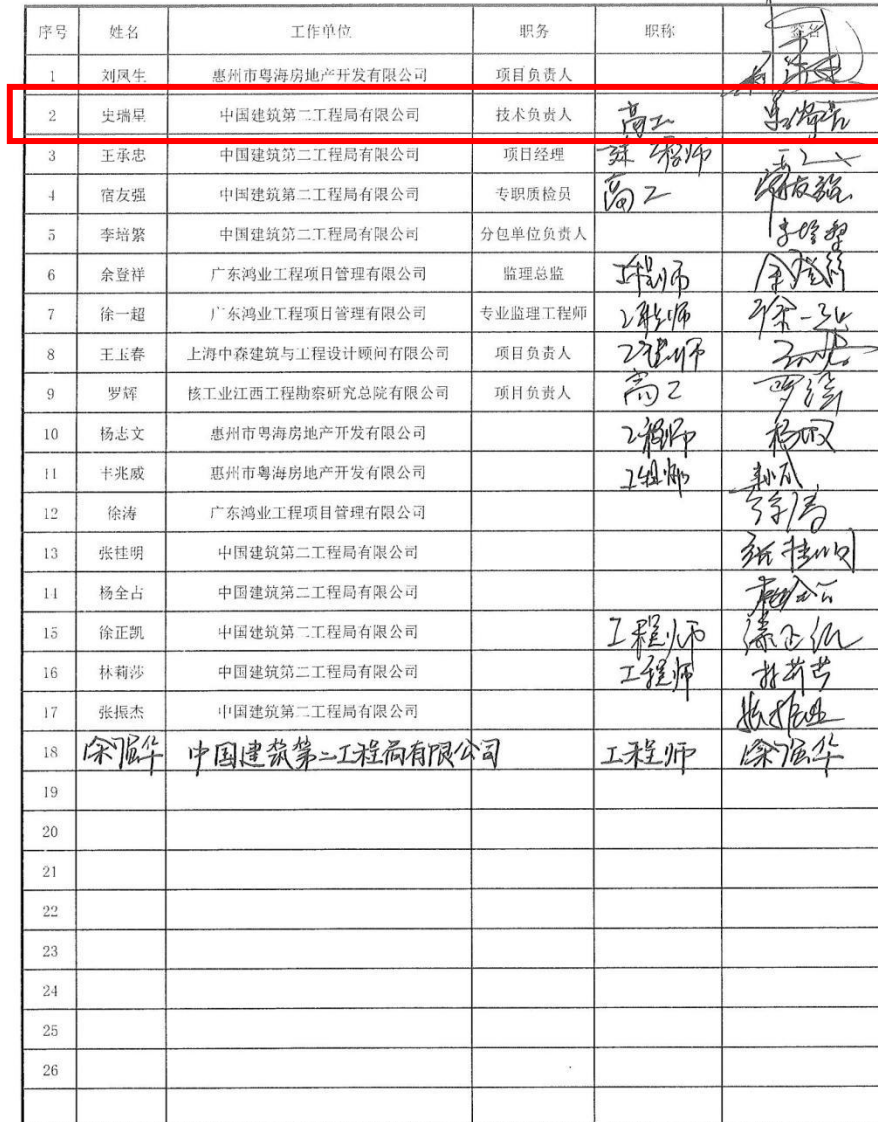 序号 姓名 工作单位 职务 职称 签名
1 刘凤生 惠州市粤海房地产开发有限公司 项目负责人
2 史瑞星 中国建筑第二工程局有限公司 技术负责人 高工
3 王承忠 中国建筑第二工程局有限公司 项目经理 工程师
4 宿友强 中国建筑第二工程局有限公司 专职质检员 高工 宿友强
5 李培繁 中国建筑第二工程局有限公司 分包单位负责人 李培繁
6 余登祥 广东鸿业工程项目管理有限公司 监理总监 工程师 余登祥
7 徐一超 广东鸿业工程项目管理有限公司 专业监理工程师 工程师 徐一超
8 王玉春 上海中森建筑与工程设计顾问有限公司 项目负责人 工程师
9 罗辉 核工业江西工程勘察研究总院有限公司 项目负责人 高工 罗辉
10 杨志文 惠州市粤海房地产开发有限公司 工程师
11 兆威 惠州市粤海房地产开发有限公司 工程师
12 徐涛 广东鸿业工程项目管理有限公司 徐涛
13 张桂明 中国建筑第二工程局有限公司 张桂明
14 杨全占 中国建筑第二工程局有限公司
15 徐正凯 中国建筑第二工程局有限公司 工程师 徐正凯
16 林莉莎 中国建筑第二工程局有限公司 工程师 林莉莎
17 张振杰 中国建筑第二工程局有限公司 张振杰
18 中国建筑第二工程局有限公司 工程师
19
20
21
22
23
24
25
26